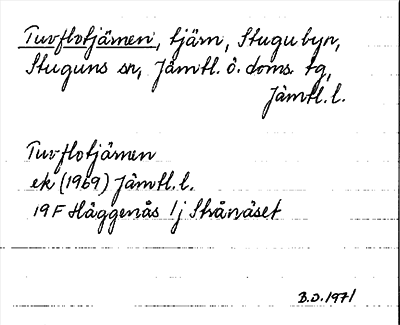 Tuvflotjärnen, tjärn, Stugubyn,
Stuguns sn, Jämtl. ö. doms. tg,
Jämtl. l.
Tuvflotjärnen
ek (1969) Jämtl. l.
19F Häggenås 1j Strånäset
B.D. 1971